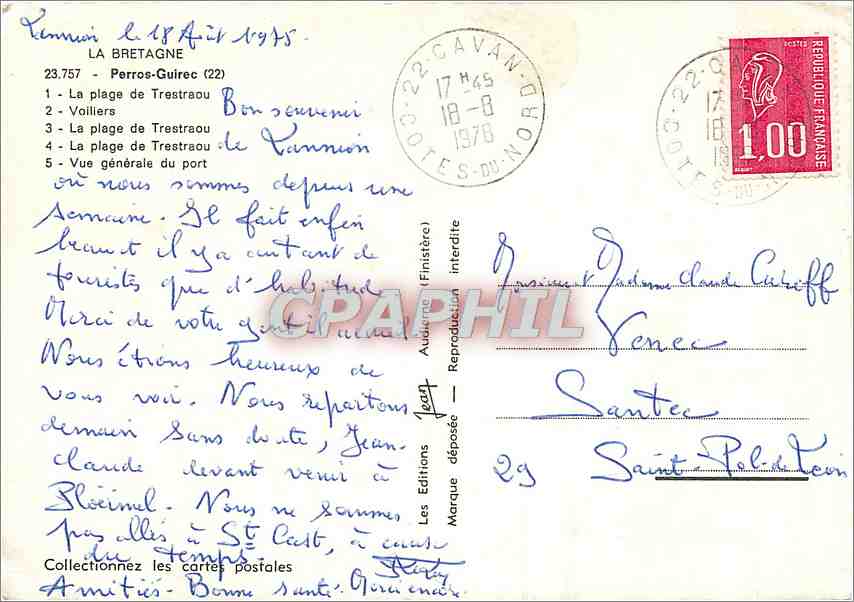 Lannion le 18 Août 1975.
LA BRETAGNE
23.757 - Perros-Guirec (22)
1 - La plage de Trestraou
2 - Voiliers
3 - La plage de Trestraou
4 - La plage de Trestraou
5 - Vue générale du port
Bon souvenir
de Lannion
où nous sommes depuis une
semaine. Il fait enfin
beau et il y a autant de
touristes que d'habitude
Merci de votre gentil accueil
Nous étions heureux de
vous voir. Nous repartons
demain sans doute, Jean-
claude devant venir à
Ploërmel. Nous ne sommes
pas allés à St Cast, à cause
du temps.
Collectionnez les cartes postales
Amitiés - Bonne santé. Merci encore.
Les Editions Jean Audierne (Finistère)
Marque déposée — Reproduction interdite
22-CAVAN
17 H 45
18-8
1978
COTES-DU-NORD
22-CA
17
18
19
COTES-DU-N
POSTES
REPUBLIQUE FRANÇAISE
1,00
Monsieur et Madame Claude Careff
Venec
Santec
29 Saint-Pol-de-Léon
CPAPHIL